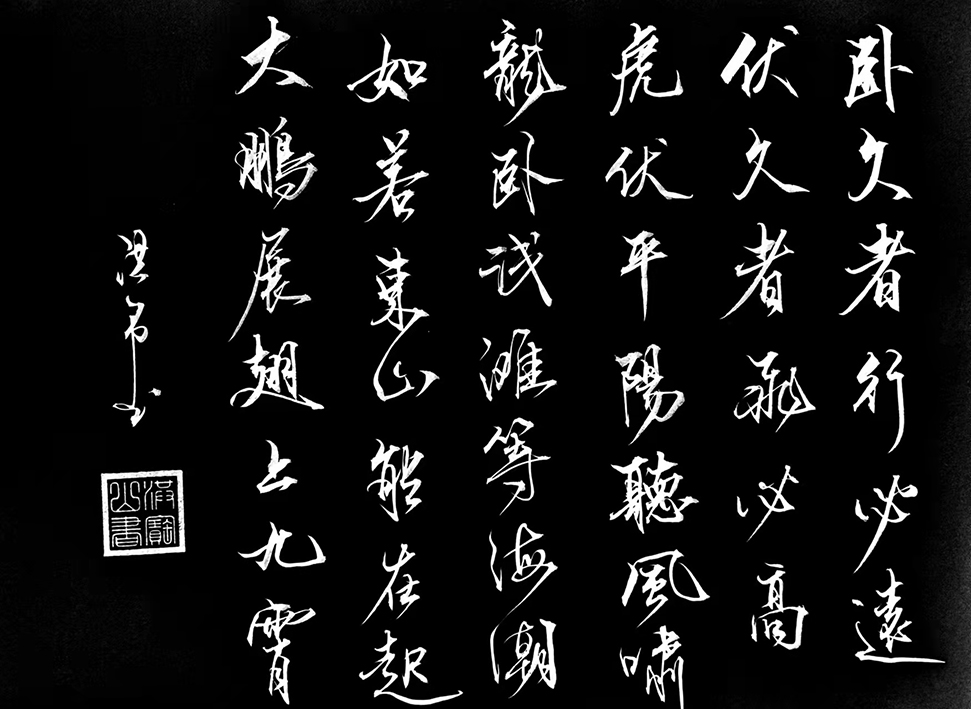 卧久者行必遠
伏久者飛必高
虎伏平陽聽風嘯
龍卧淺灘等海潮
如若東山能在起
大鵬展翅上九霄